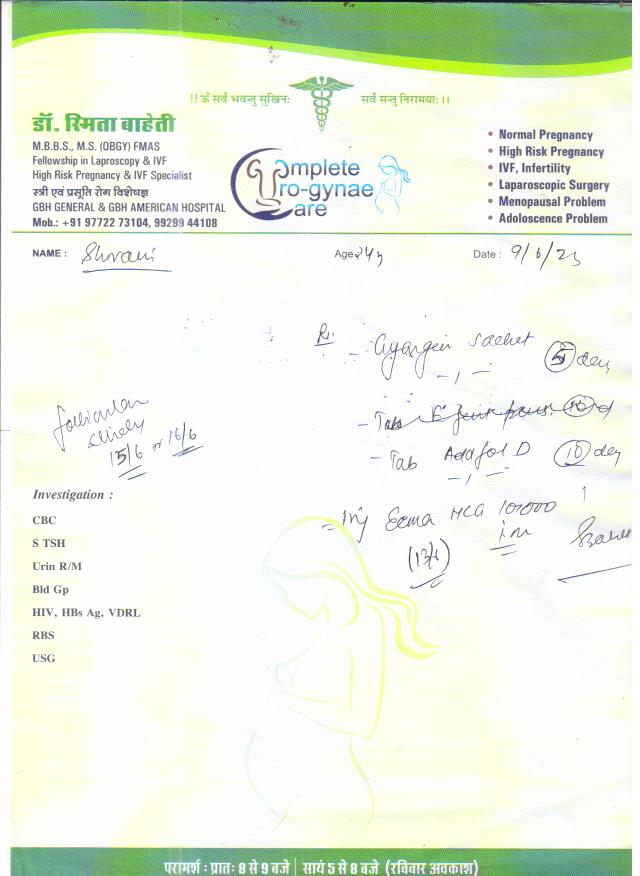 !! ॐ सर्वे भवन्तु सुखिनः सर्वे सन्तु निरामयाः ।।
डॉ. स्मिता बाहेती
M.B.B.S., M.S. (OBGY) FMAS
Fellowship in Laproscopy & IVF
High Risk Pregnancy & IVF Specialist
स्त्री एवं प्रसूति रोग विशेषज्ञ
GBH GENERAL & GBH AMERICAN HOSPITAL
Mob.: +91 97722 73104, 99299 44108
Complete
Uro-gynae
Care
• Normal Pregnancy
• High Risk Pregnancy
• IVF, Infertility
• Laparoscopic Surgery
• Menopausal Problem
• Adoloscence Problem
NAME : Age 24y Date : 9/6/23
Sachet 5 day
Follicular
study
15/6 or 16/6
- Tab 10 d
- Tab D 10 day
- Inj HCG 10000
im
(13/6)
Investigation :
CBC
S TSH
Urin R/M
Bld Gp
HIV, HBs Ag, VDRL
RBS
USG
परामर्श : प्रातः 8 से 9 बजे | सायं 5 से 8 बजे (रविवार अवकाश)